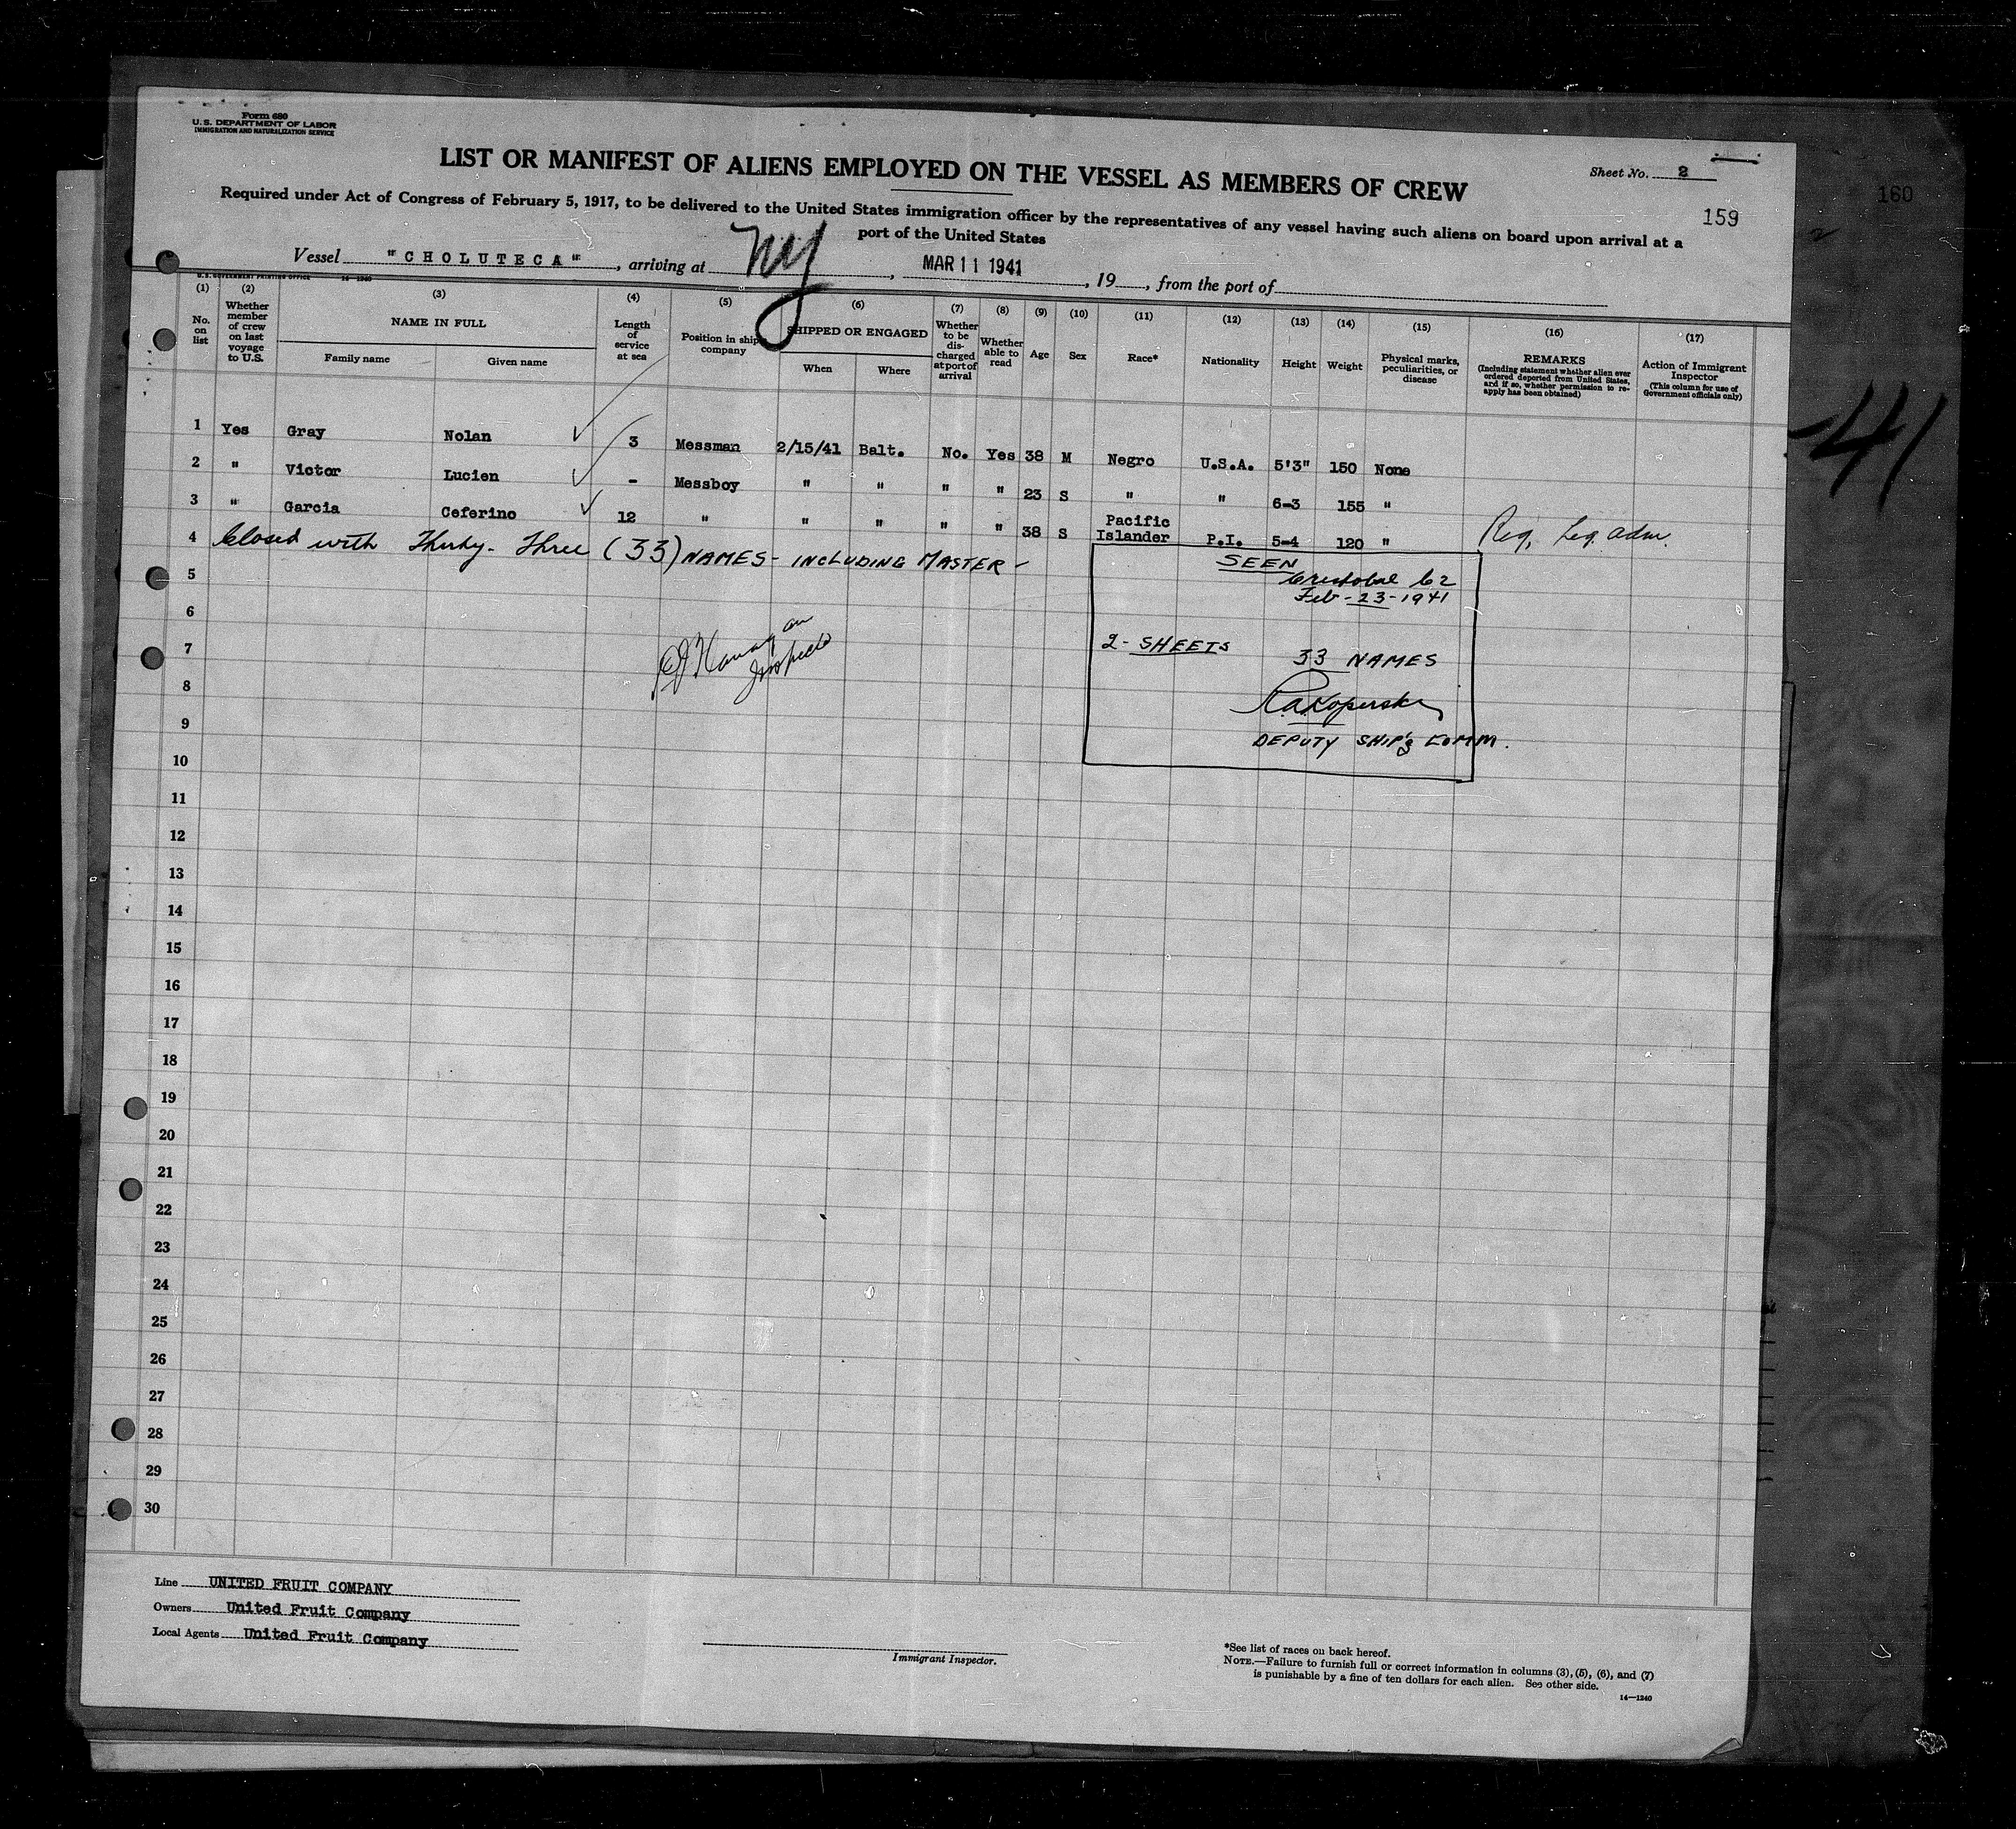 Form 680
U. S. DEPARTMENT OF LABOR
IMMIGRATION AND NATURALIZATION SERVICE
LIST OR MANIFEST OF ALIENS EMPLOYED ON THE VESSEL AS MEMBERS OF CREW
Sheet No. 2
Required under Act of Congress of February 5, 1917, to be delivered to the United States immigration officer by the representatives of any vessel having such aliens on board upon arrival at a
port of the United States
159
160
Vessel "CHOLUTECA", arriving at NY, MAR 11 1941, 19, from the port of
U. S. GOVERNMENT PRINTING OFFICE 14-1240
(1) No. on list
(2) Whether member of crew on last voyage to U.S.
(3) NAME IN FULL Family name Given name
(4) Length of service at sea
(5) Position in ship's company
(6) SHIPPED OR ENGAGED When Where
(7) Whether to be discharged at port of arrival
(8) Whether able to read
(9) Age
(10) Sex
(11) Race*
(12) Nationality
(13) Height
(14) Weight
(15) Physical marks, peculiarities, or disease
(16) REMARKS (Including statement whether alien ever ordered deported from United States, and if so, whether permission to reapply has been obtained)
(17) Action of Immigrant Inspector (This column for use of Government officials only)
1 Yes Gray Nolan 3 Messman 2/15/41 Balt. No. Yes 38 M Negro U.S.A. 5'3" 150 None
2 " Victor Lucien - Messboy " " " " 23 S " " 6-3 155 "
3 " Garcia Ceferino 12 " " " " " 38 S Pacific Islander P.I. 5-4 120 " Reg. Leg. adm.
4 Closed with Thirty-Three (33) NAMES - INCLUDING MASTER -
5
6
7
8
9
10
11
12
13
14
15
16
17
18
19
20
21
22
23
24
25
26
27
28
29
30
SEEN
Cristobal CZ
Feb-23-1941
2-SHEETS
33 NAMES
DEPUTY SHIP'g COMM.
41
Line UNITED FRUIT COMPANY
Owners United Fruit Company
Local Agents United Fruit Company
Immigrant Inspector.
*See list of races on back hereof.
NOTE.—Failure to furnish full or correct information in columns (3), (5), (6), and (7)
is punishable by a fine of ten dollars for each alien. See other side.
14—1240